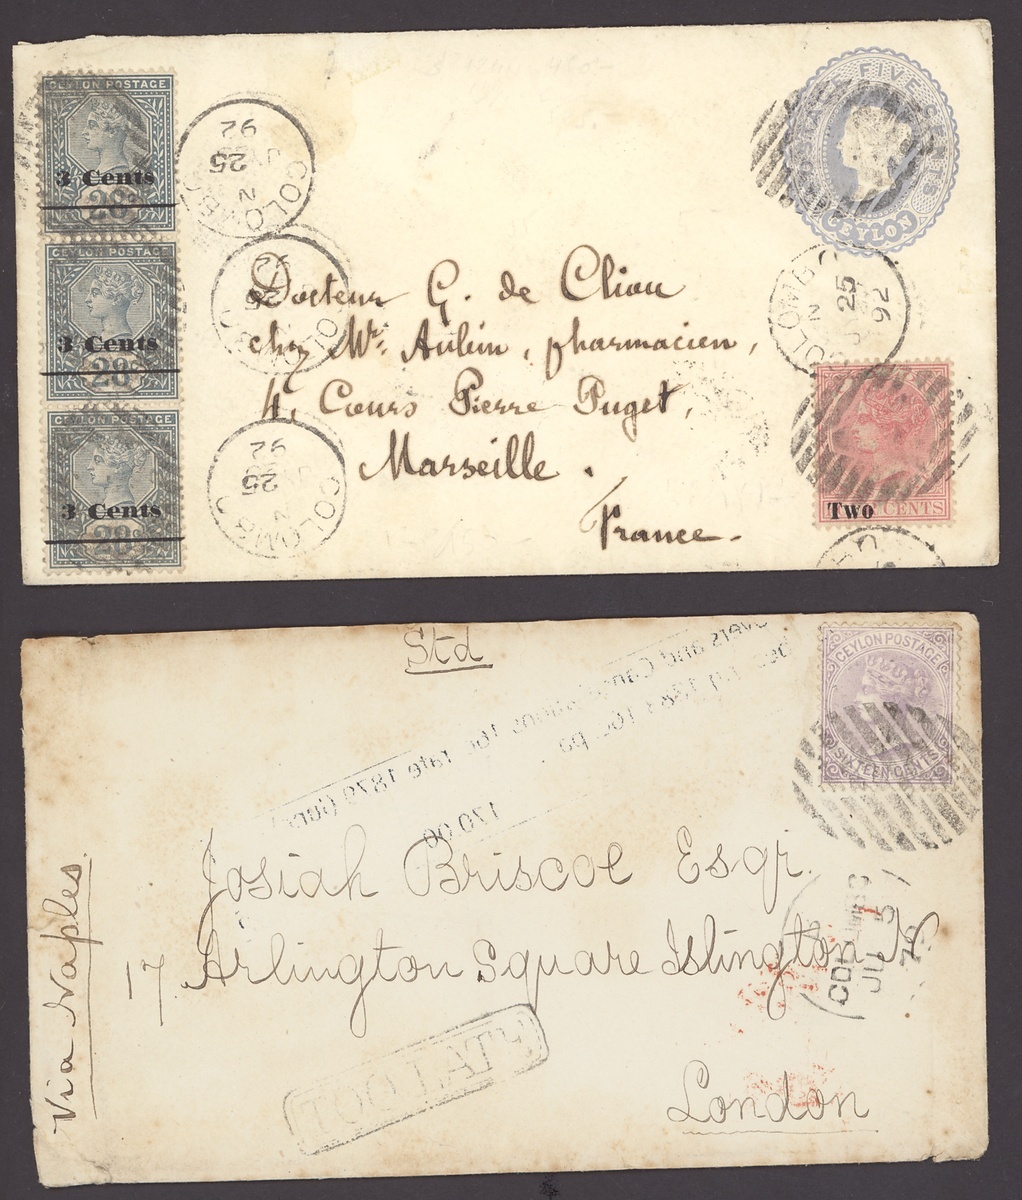 CEYLON POSTAGE
3 Cents
28
CEYLON POSTAGE
3 Cents
28
CEYLON POSTAGE
3 Cents
28
COLOMBO
N
25
92
COLOMBO
N
25
92
COLOMBO
N
25
92
POSTAGE FIVE CENTS
CEYLON
COLOMBO
N
25
92
Docteur G. de Cliou
chez Mr. Aubin, pharmacien,
4, Cours Pierre Puget,
Marseille.
France.
TWO CENTS
Std
CEYLON POSTAGE
SIXTEEN CENTS
and
rate 1879
170.00
Josiah Briscoe Esqr.
17 Arlington Square Islington N
London
Via Naples
TOO LATE
JU 5